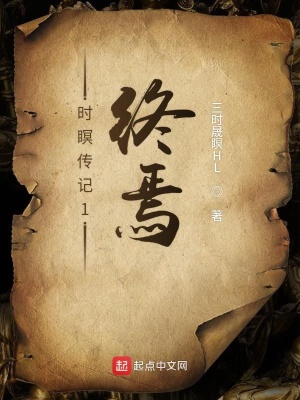 终焉
时瞑传记1
三时晟暝HL ◎ 著
起 起点中文网